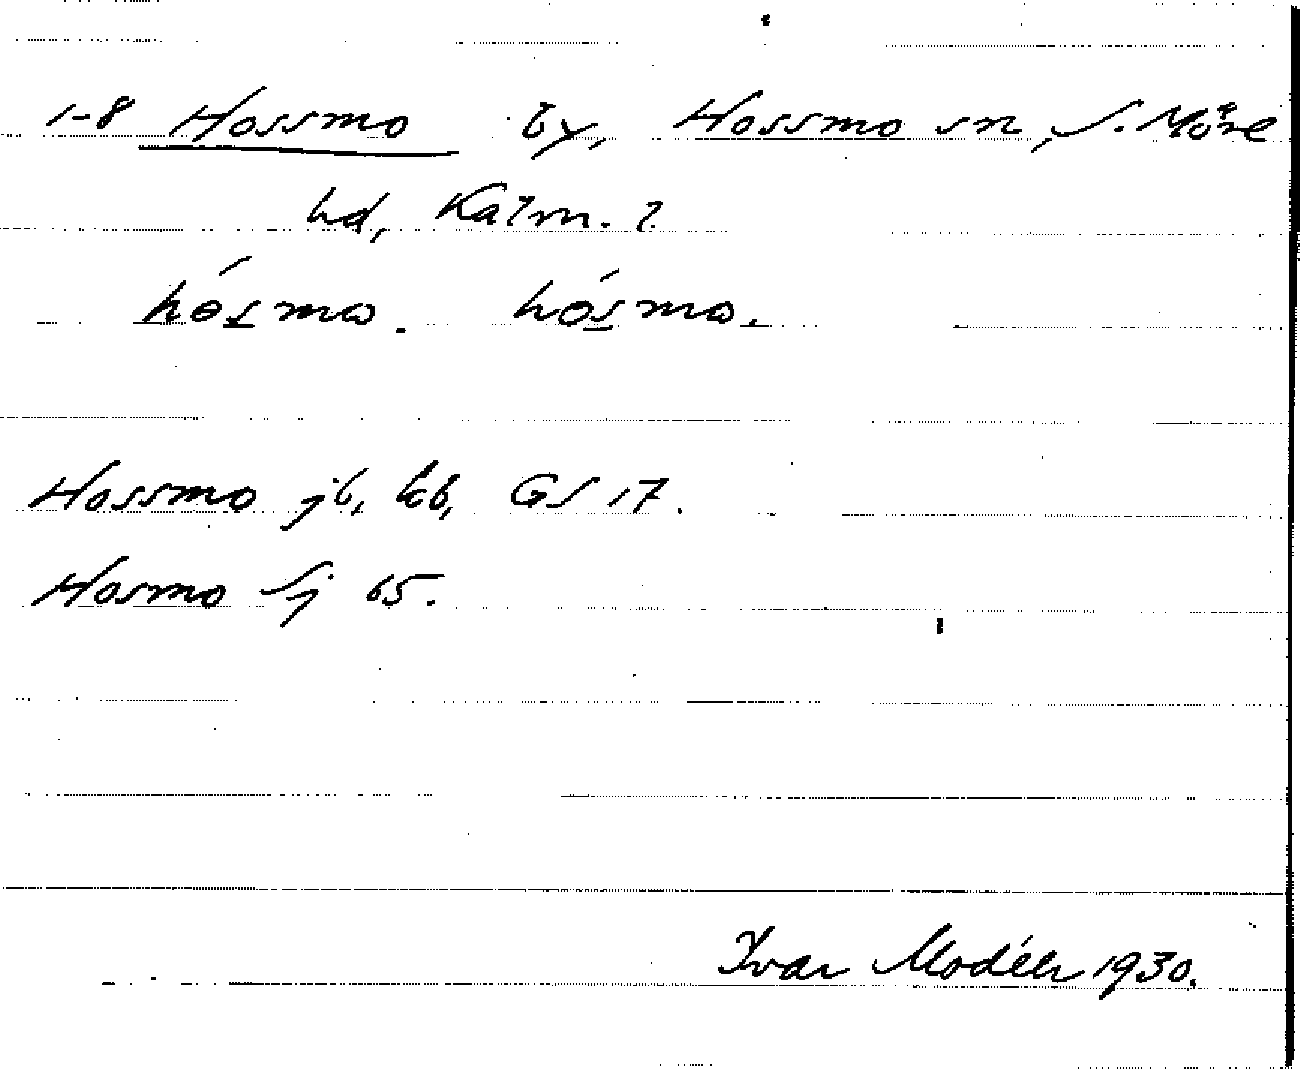 1-8 Hossmo by, Hossmo sn, S. Möre
hd, Kalm. l.
hósmo. hósmo.
Hossmo jb, kb, GS 17.
Hosmo Sj 65.
Ivar Modéer 1930.